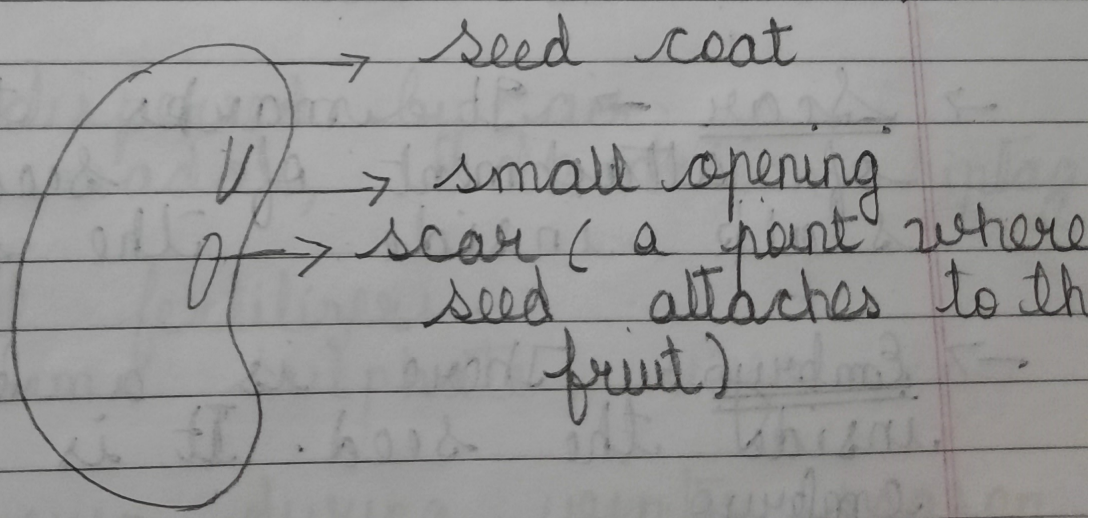 seed coat
small opening
scar ( a point where
seed attaches to th
fruit)